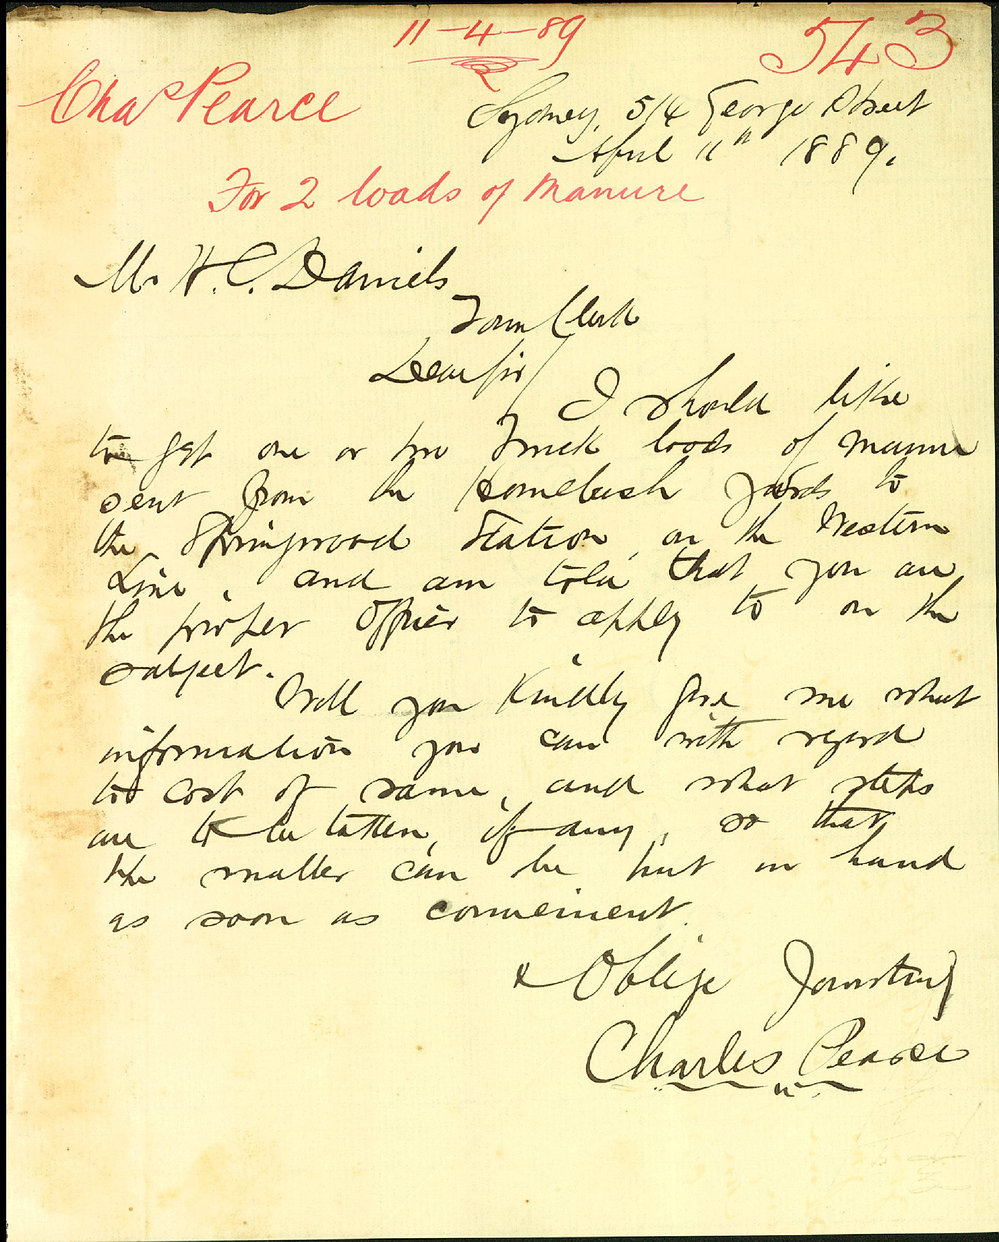 11-4-89
543
Chas Pearce
Sydney, 514 George Street
April 11th 1889.
For 2 loads of Manure
Mr H. C. Daniels
Town Clerk
Dear Sir/
I should like
to get one or two Truck loads of manure
sent from the Homebush yards to
the Springwood Station, on the Western
Line, and am told that you are
the proper Officer to apply to on the
subject.
Will you Kindly give me what
information you can with regard
to cost of same, and what steps
are to be taken, if any, so that
the matter can be put in hand
as soon as convenient.
& Oblige Yours truly
Charles Pearce